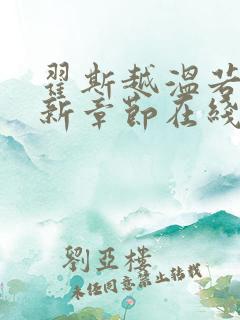 翟斯越温若
新章節在綫
劉亞樓
未经同意禁止转载